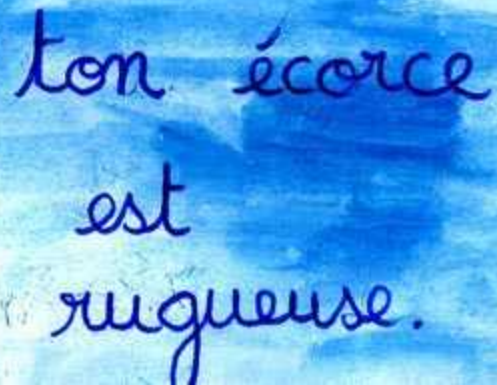 ton écorce
est
rugueuse.